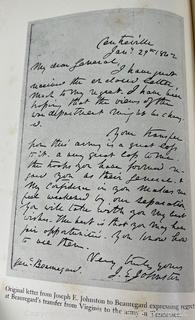 Centreville
Jan'y 29th 1862
My dear General,
I have just
received the enclosed letter
Much to my regret. I have been
hoping that the views of the
war department might be chang-
ed.
Your transfer
from this army is a great loss
to it. a very great loss to me.
The troops you have formed re-
gard you as their General &
My confidence in you makes me
feel weakened by our separation.
You will take with you my best
wishes. The best is that you may have
fair opportunities. You know how
to use them.
Very truly yours
J. E. Johnston
Genl. Beauregard.
Original letter from Joseph E. Johnston to Beauregard expressing regret
at Beauregard's transfer from Virginia to the army in Tennessee.